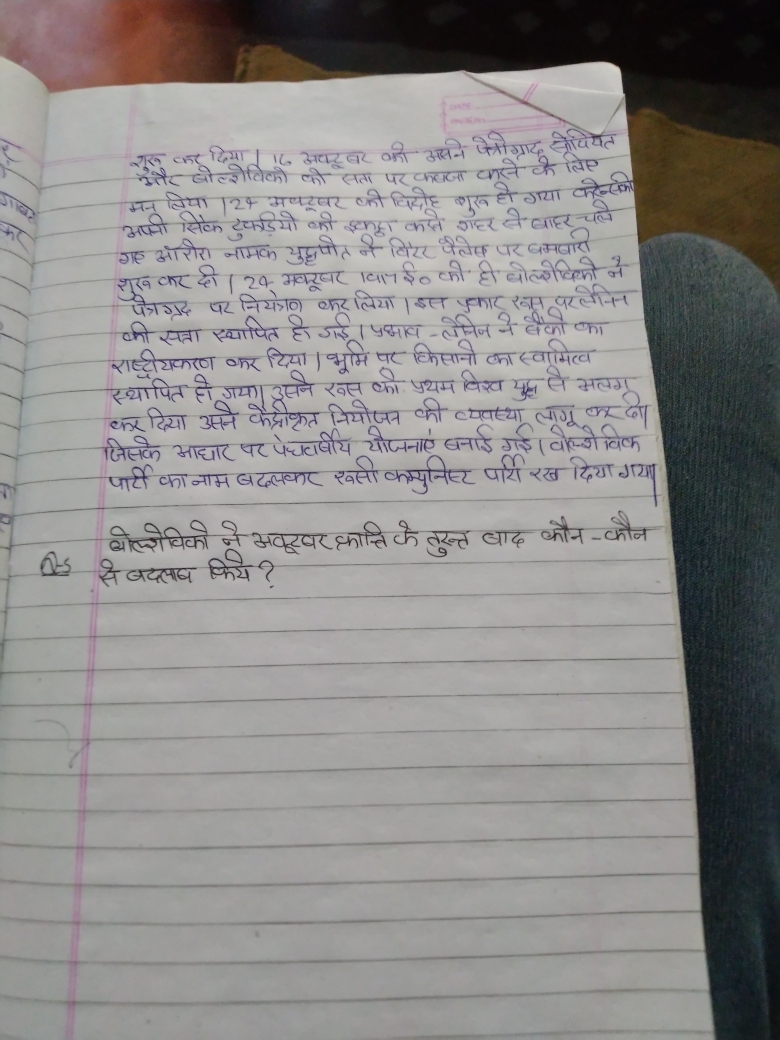 शुरू कर दिया। 16 अक्टूबर को उसने पेत्रोग्राद सोवियत
और बोल्शेविकों को सत्ता पर कब्जा करने के लिए
मना लिया। 24 अक्टूबर को विद्रोह शुरू हो गया
अपनी टुकड़ियों को इकट्ठा करने शहर से बाहर चले
गए ऑरोरा नामक युद्धपोत ने विंटर पैलेस पर बमबारी
शुरू कर दी। 24 अक्टूबर 1917 ई० को ही बोल्शेविकों ने
पेत्रोग्राद पर नियंत्रण कर लिया। इस प्रकार रूस पर लेनिन
की सत्ता स्थापित हो गई। प्रभाव - लेनिन ने बैंकों का
राष्ट्रीयकरण कर दिया। भूमि पर किसानों का स्वामित्व
स्थापित हो गया। उसने रूस को प्रथम विश्व युद्ध से अलग
कर दिया उसने केंद्रीकृत नियोजन की व्यवस्था लागू कर दी।
जिसके आधार पर पंचवर्षीय योजनाएं बनाई गई। बोल्शेविक
पार्टी का नाम बदलकर रूसी कम्युनिस्ट पार्टी रख दिया गया।
बोल्शेविकों ने अक्टूबर क्रान्ति के तुरन्त बाद कौन-कौन
Q-5 से बदलाव किये?